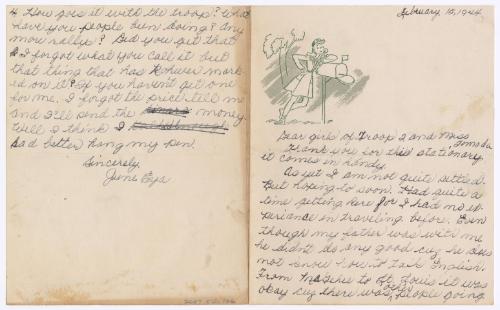 4 How goes it with the troop? What
have you people been doing? Any
more rallys? Did you get that
I forgot what you call it but
that thing that has Rohwer mark-
ed on it? If you haven't get one
for me. I forgot the price tell me
and I'll send the money.
Well I think I
had better hang my pen.
Sincerely,
June
February 15, 1944
Dear girls of Troop 2 and Miss
Thank you for this stationary.
it comes in handy.
As yet I am not quite settled.
But hoping to soon. Had quite a
time getting here for I had no ex-
periance in traveling before. Even
though my father was with me
he didn't do any good cuz he does
not know how to talk English.
From to St. Louis it was
okay cuz there was other people going